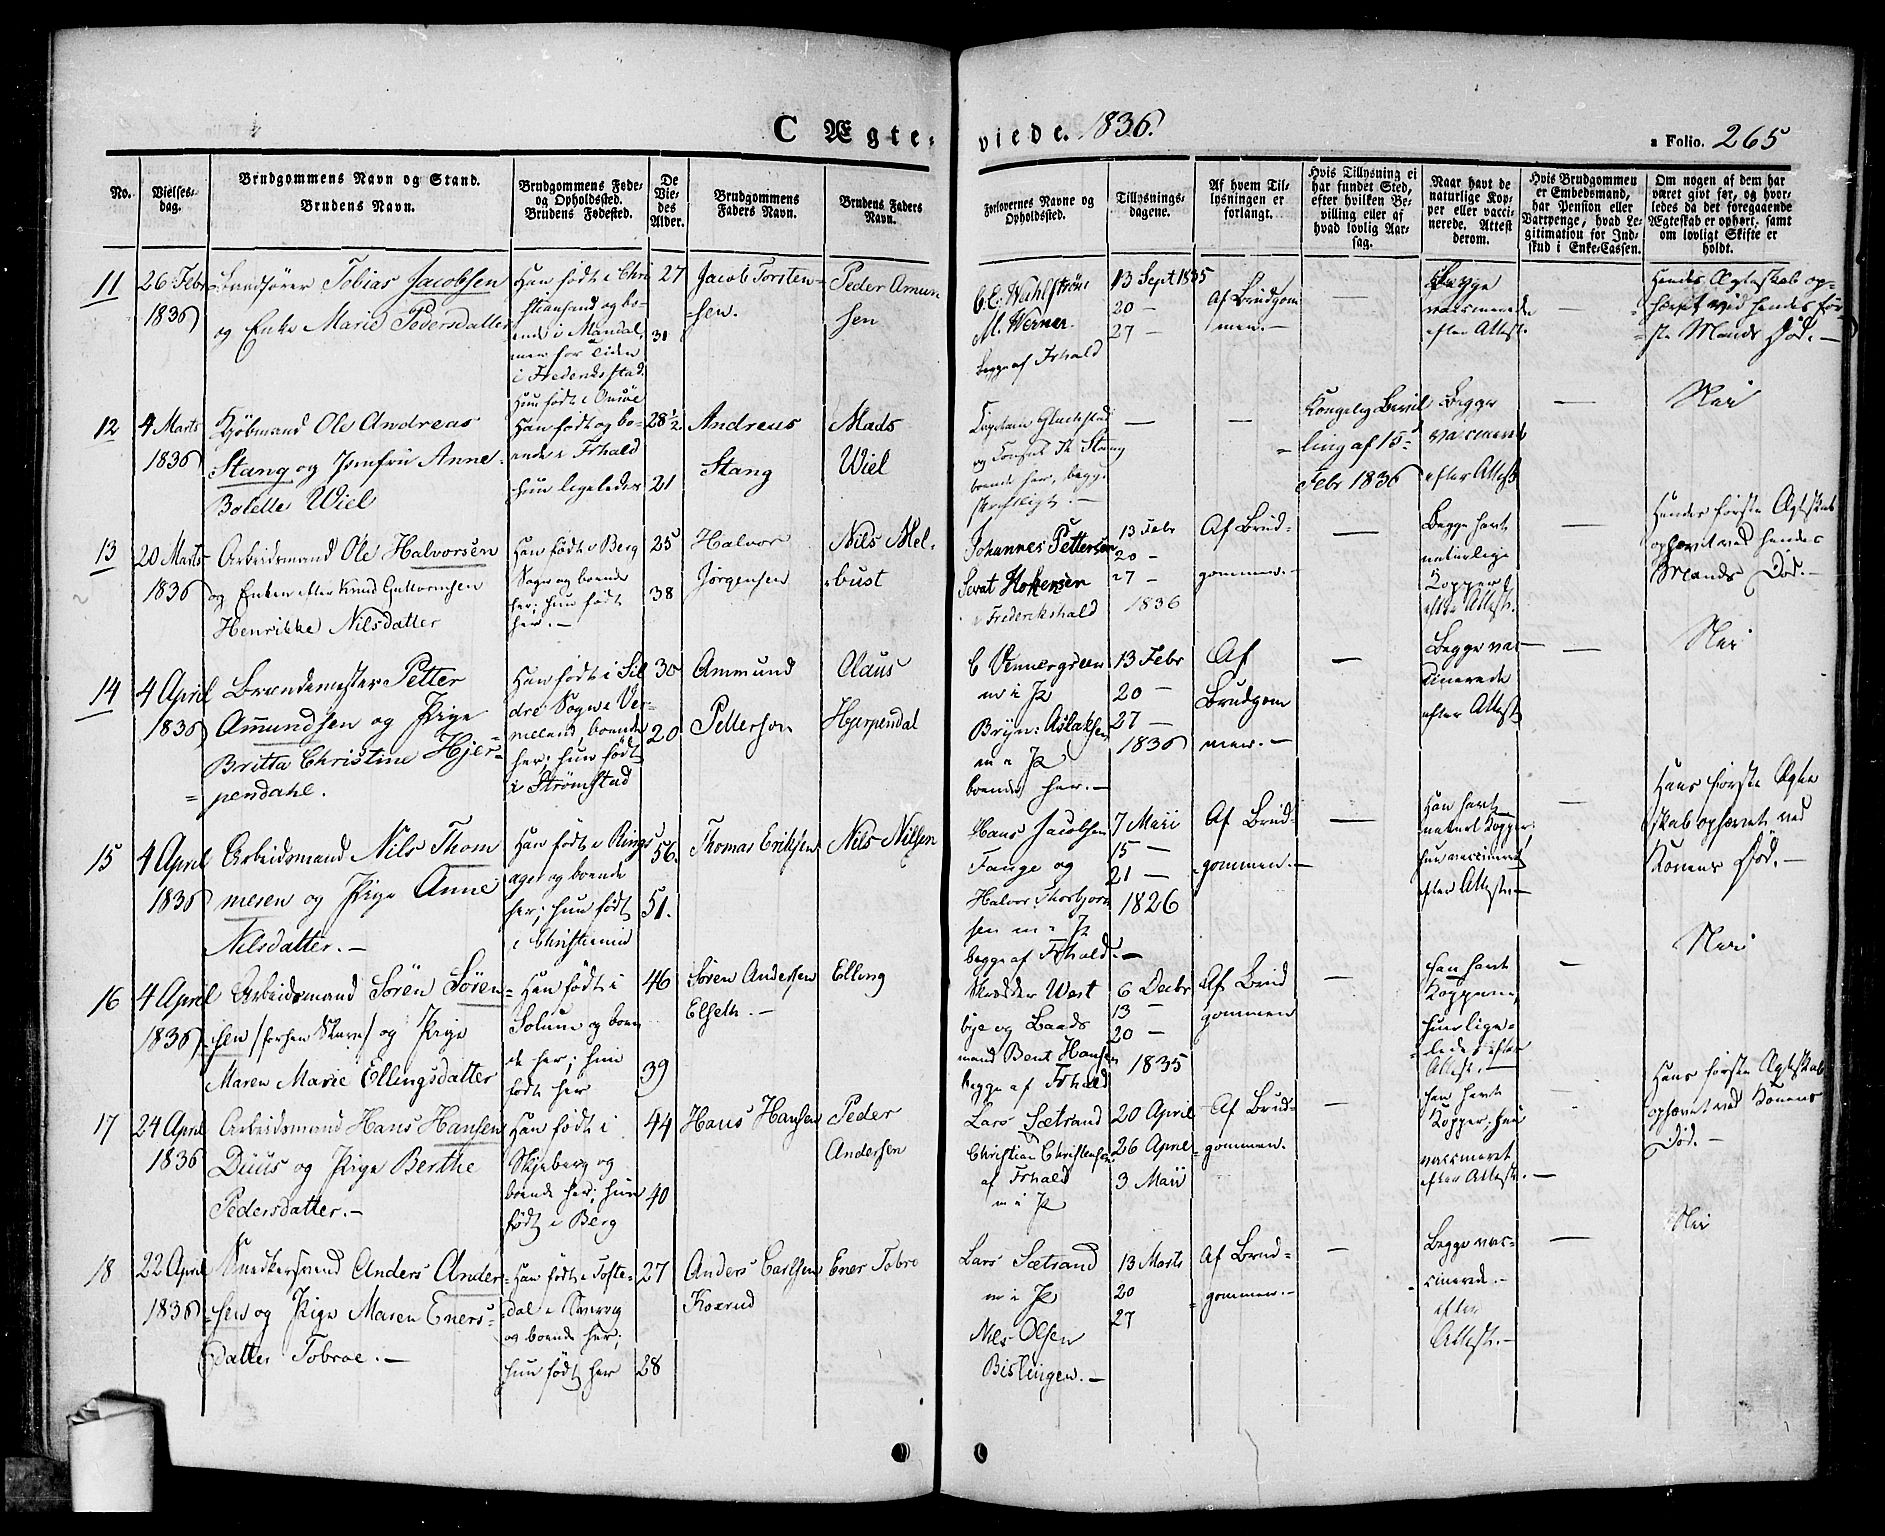 C Ægteviede. 1836.
a Folio. 265
No.
Vielsesdag.
Brudgommens Navn og Stand.
Brudens Navn.
Brudgommens Fødeog Opholdsted.
Brudens Fødested.
De Viedes Alder.
Brudgommens Faders Navn.
Brudens Faders Navn.
Forlovernes Navne og Opholdsted.
Tillysningsdagene.
Af hvem Tillysningen er forlangt.
Hvis Tillysning ei har fundet Sted, efter hvilken Bevilling eller af hvad lovlig Aarsag.
Naar havt de naturlige Kopper eller vaccinerede. Attest derom.
Hvis Brudgommen er Embedsmand, har Pension eller Vartpenge, hvad Legitimation for Indskud i Enke-Cassen.
Om nogen af dem har været givt før, og hvorledes da det foregaaende Ægteskab er ophørt, samt om lovligt Skifte er holdt.
11
26 Febr
1836
Tobias Jacobsen
og Enke Marie Pedersdatter
Han født i Christiansand og boende i Mandal,
men for Tiden
i Frederiksstad.
Hun født i Onsöe
27
31
Jacob Torstensen.
Peder Amunsen
C. E. Wahlström
M. Werner.
begge af Frhald
13 Sept 1835
20 —
27 —
Af Brudgommen. —
—
Begge
vaccinerede
efter Attest.
—
Hendes Ægteskab ophævet ved hendes første Mands Død. —
12
4 Marts
1836
Kjøbmand Ole Andreas
Stang og Jomfru Anne
Bolette Wiel
Han født og boende i Frhald
Hun ligeledes
28 1/2
21
Andreas
Stang
Mads
Wiel
og Consul Th Stang
boende her, begge
skriftligt. —
—
—
Kongelig Bevilling af 15d
Febr 1836
Begge
vaccineret
efter Attest
—
Nei
13
20 Marts
1836
Arbeidsmand Ole Halvorsen
og Enken efter Knud Guttormsen
Henrikke Nilsdatter
Han født i Berg
Sogn og boende
her; hun født
her. —
25
38
Halvor
Jørgensen
Nils Melbust
Johannes Pettersen
i Frederikshald
13 Febr
20 —
27 —
1836
Af Brudgommen. —
—
Begge havt
naturlige
Kopper
efter Attest.
—
Hendes første Ægteskab
ophævet ved hendes
Mands Død. —
14
4 April
1836
Brændemester Petter
Amundsen og Pige
Britta Christine Hjerpendahl.
Han født i Sil
dre Sogn i Vermeland, boende
her; hun født
i Strömstad
30
20
Ammund
Petterson
Olaus
Hjerpendal
C Vennergreen
Brÿn: Aslaksen
boende her. —
13 Febr
20 —
27 —
1836
Af
Brudgommen. —
—
Begge vaccinerede
efter Attest
—
Nei
15
4 April
1836
Arbeidsmand Nils Thommesen og Pige Anne
Nilsdatter. —
Han født i Ringsager og boende
her; hun født
i Christiania
56.
51.
Thomas Eriksen
Nils Nilsen
Hans Jacobsen
Tange og
Halvor Thorbjørnsen
begge af Frhald. —
7 Marti
15 —
21 —
1826
Af Brudgommen. —
—
Han havt
naturl Kopper;
hun vaccineret
efter Attester
—
Hans første Ægteskab ophævet ved
Konens Død. —
16
4 April
1836
Arbeidsmand Sören Sörensen og Pige
Maren Marie Ellingsdatter
Han født i
Solum og boende her; hun
født her
46
39
Sören Andersen
Elseth. —
Elling
Skrædder Westbye og Baadsmand Bent Hansen
begge af Frhald
6 Decbr
13 —
20 —
1835
Af Brudgommen
—
Han havt
Koppene,
hun ligeledes efter
Attest. —
—
Nei
17
24 April
1836
Arbeidsmand Hans Hansen
Duus og Pige Berthe
Pedersdatter. —
Han født i
Skjeberg og
boende her; hun
født i Berg
44
40
Hans Hansen
Peder
Andersen
Lars Sætrand
Christian Christensen
af Frhald
20 April
26 April
3 Maii
Af Brudgommen.
—
Han havt
Kopper; hun
vaccineret
efter Attest. —
—
Hans første Ægteskab
ophævet ved Konens
Død. —
18
22 April
1836
Snedkersvend Anders Andersen og Pige Maren Enersdatter Tobroe. —
Han født i Tostedal i Sverrig
og boende her;
hun født her
27
28
Anders Carlsen
Koxrud
Ener Tobro
Lars Sætrand
Nils Olsen
Bislingen. —
13 Marts
20
27
Af Brudgommen. —
—
Begge vaccinerede. —
efter
Attest. —
—
Nei